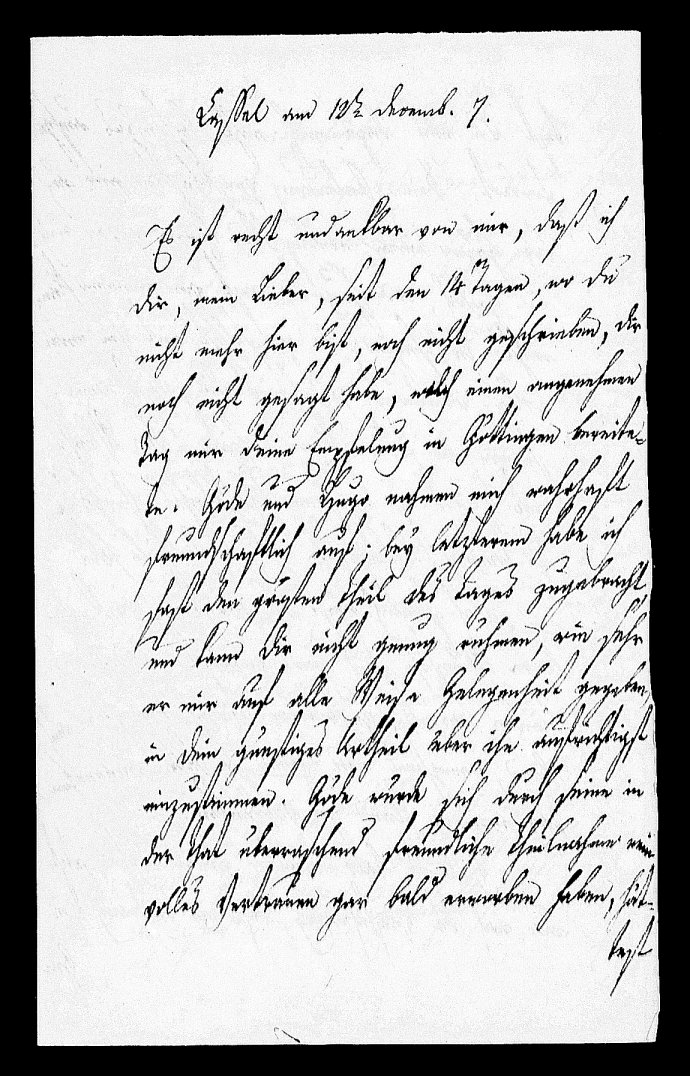 Cassel am 12t decemb. 7.
Es ist recht undankbar von mir, daß ich
dir, mein Lieber, seit den 14 Tagen, wo du
nicht mehr hier bist, noch nicht geschrieben, dir
noch nicht gesagt habe, welch einen angenehmen
Tag mir deine Empfelung in Göttingen bereite-
te. Göde und Hugo nahmen mich wahrhaft
freundschaftlich auf; bey letzterem habe ich
fast den grösten Theil des Tages zugebracht,
und kann dir nicht genung rühmen, wie sehr
er mir auf alle Weise Gelegenheit gegeben,
in dein günstiges Urtheil über ihn aufrichtigst
einzustimmen. Göde wurde sich durch seine in
der That überraschend freundliche Theilnahme mein
volles Vertrauen gar bald erworben haben, hät-
test